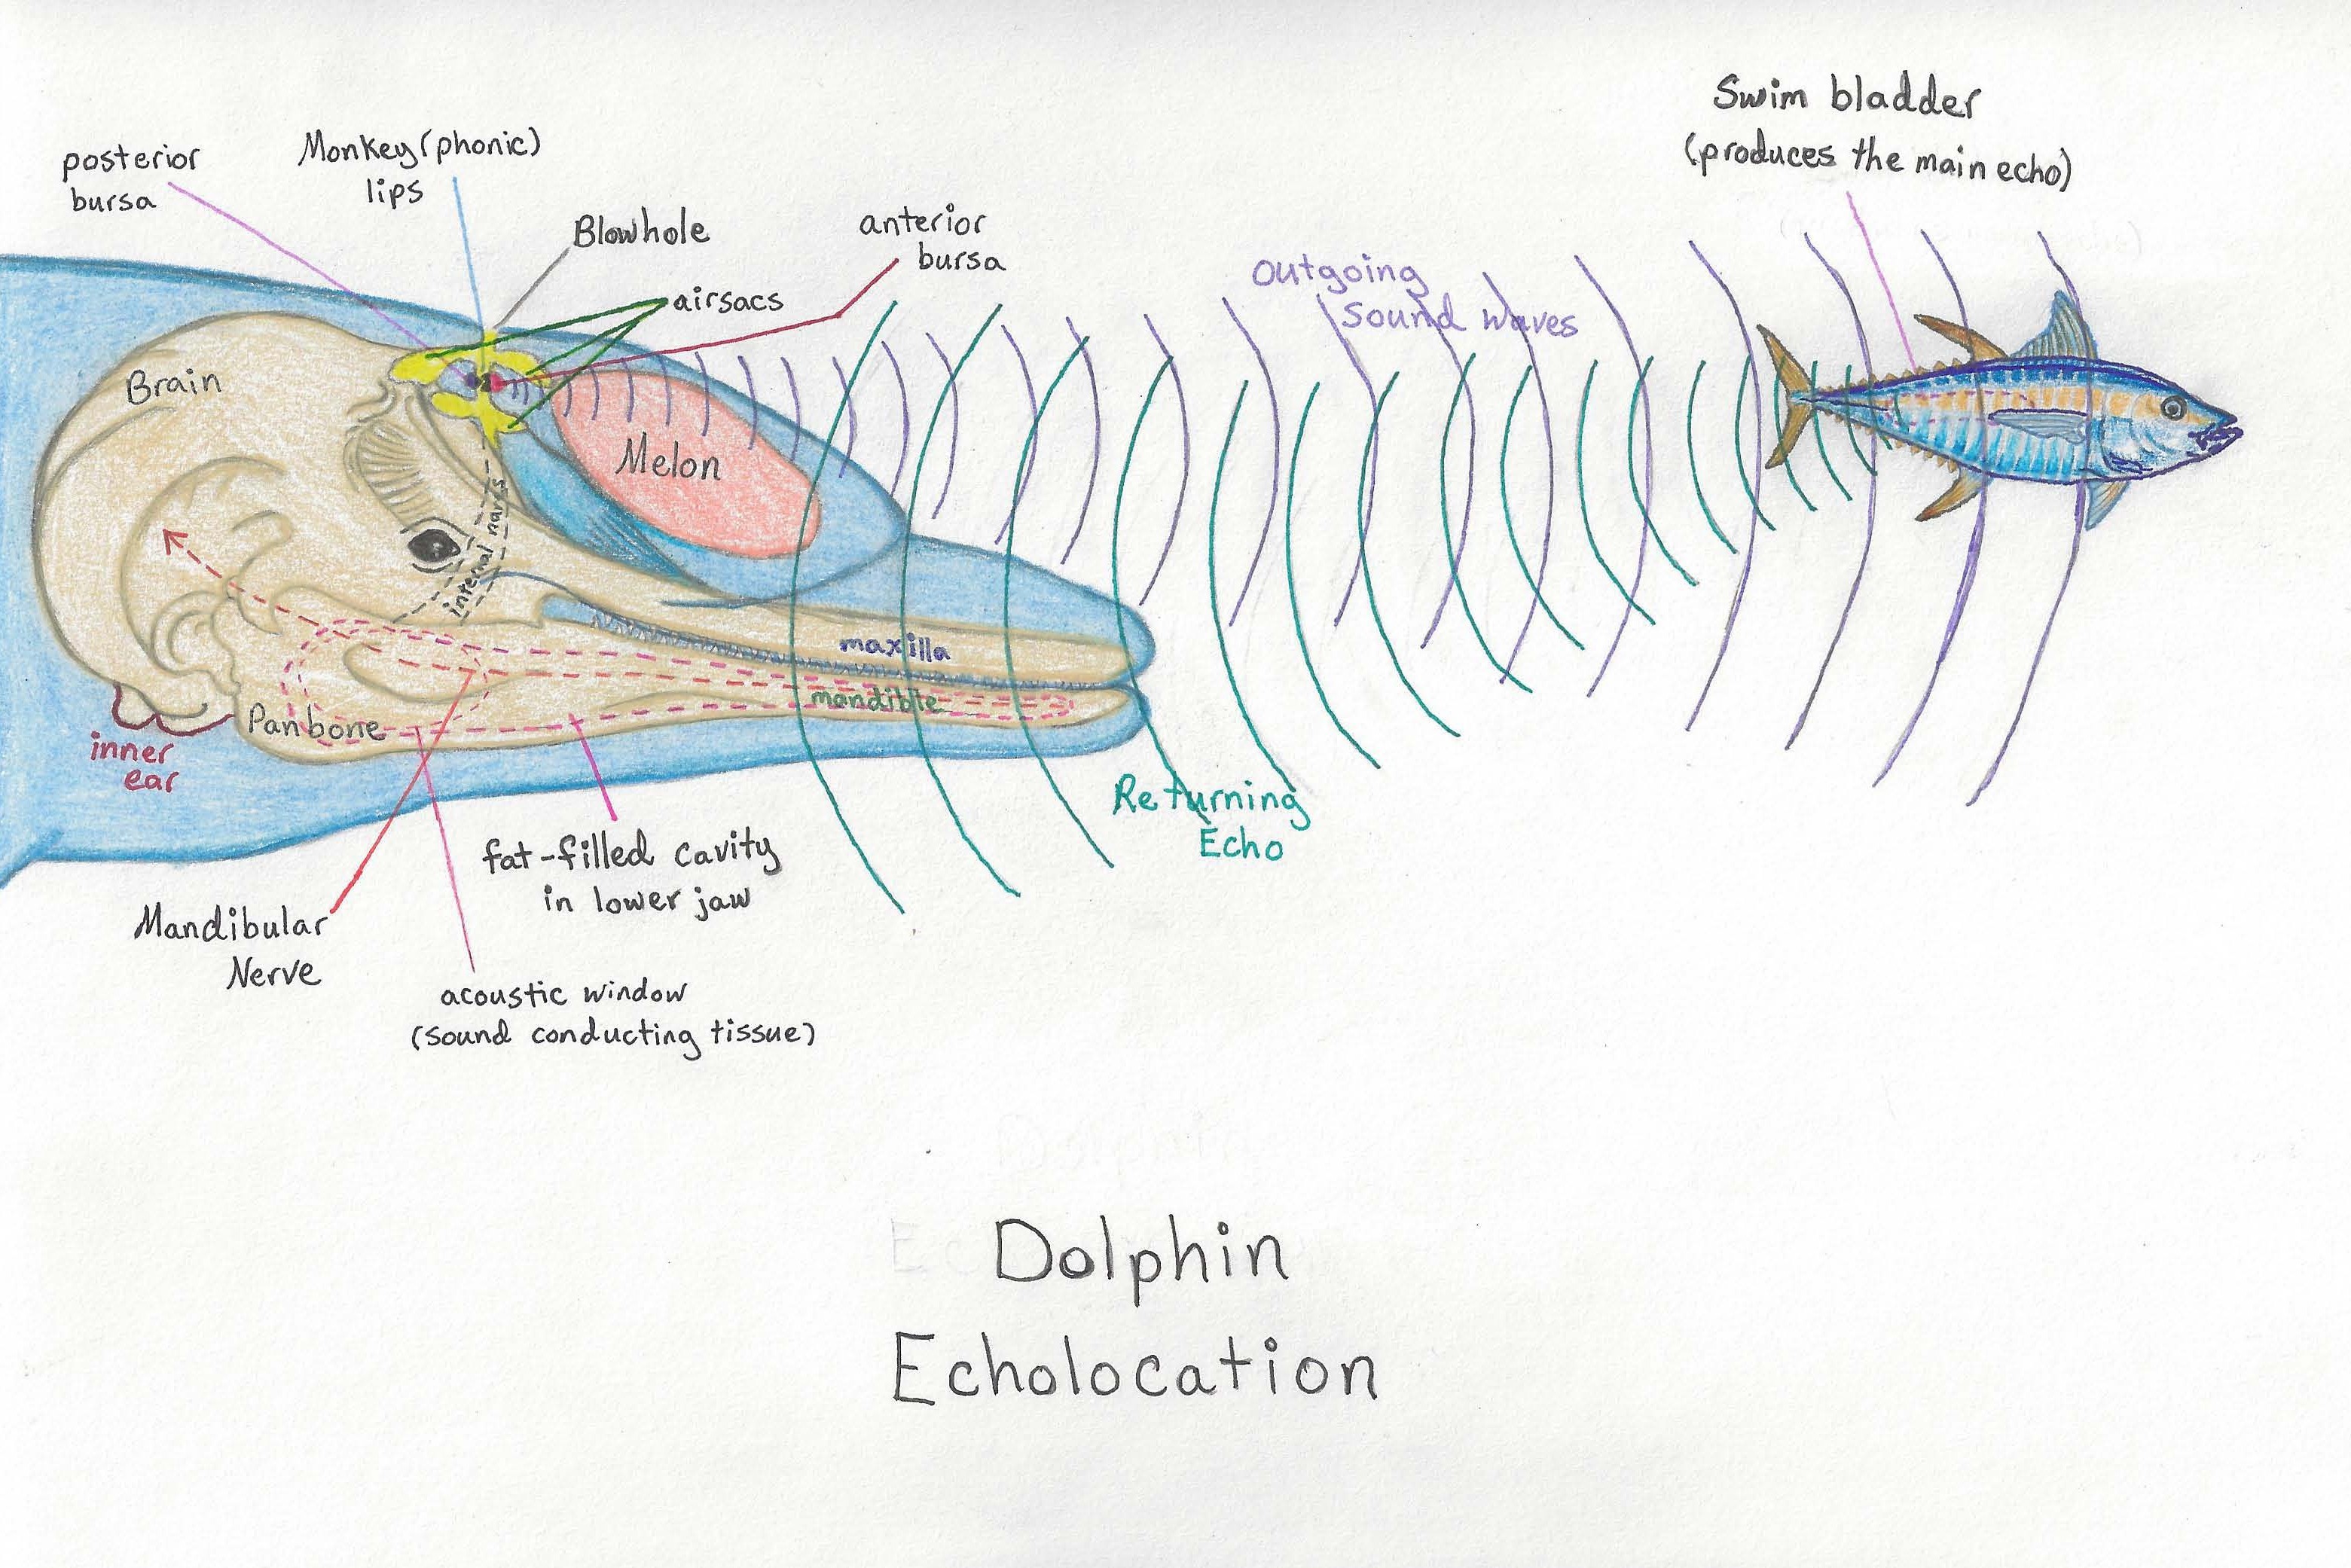 Swim bladder
(produces the main echo)
posterior
bursa
Monkey (phonic)
lips
Blowhole
airsacs
anterior
bursa
Outgoing
Sound waves
Brain
Melon
internal nares
maxilla
mandible
Panbone
inner
ear
Returning
Echo
fat-filled cavity
in lower jaw
Mandibular
Nerve
acoustic window
(sound conducting tissue)
Dolphin
Echolocation